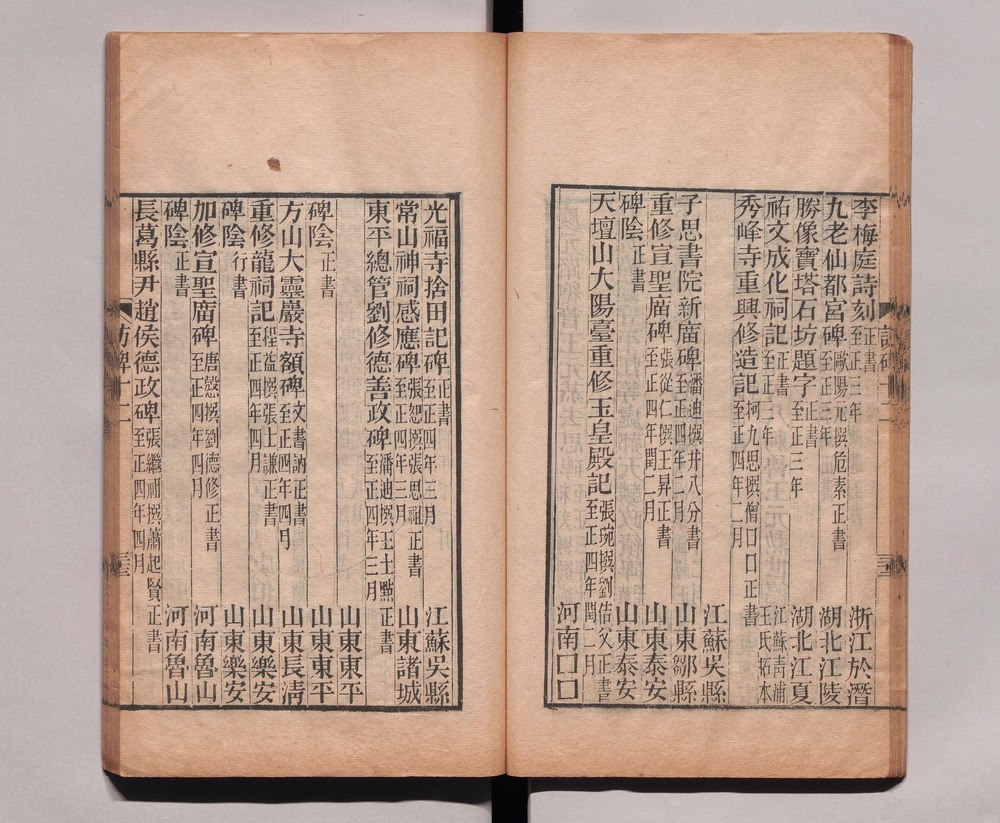 李梅庭詩刻 正書 至正三年 浙江於潛
九老仙都宮碑 歐陽元撰危素正書 至正三年 湖北江陵
勝像寶塔石坊題字 正書 至正三年 湖北江夏
祐文成化祠記 正書 至正三年 江蘇青浦王氏拓本
秀峰寺重興修造記 柯九思撰僧口口正書 至正四年二月
江蘇吳縣
子思書院新廟碑 潘迪撰并八分書 至正四年二月 山東鄒縣
重修宣聖廟碑 張從仁撰王昇正書 至正四年閏二月 山東泰安
碑陰 正書 山東泰安
天壇山大陽臺重修玉皇殿記 張琬撰劉佶父正書 至正四年閏二月 河南口口
光福寺捨田記碑 正書 至正四年三月 江蘇吳縣
常山神祠感應碑 張恕撰張思祖正書 至正四年三月 山東諸城
東平總管劉修德善政碑 潘迪撰王士點正書 至正四年三月
山東東平
碑陰 正書 山東東平
方山大靈巖寺額碑 文書訥正書 至正四年四月 山東長清
重修龍祠記 程益撰張士謙正書 至正四年四月 山東樂安
碑陰 行書 山東樂安
加修宣聖廟碑 唐愨撰劉德修正書 至正四年四月 河南魯山
碑陰 正書 河南魯山
長葛縣尹趙侯德政碑 張繼祖撰蕭起賢正書 至正四年四月
訪碑十二